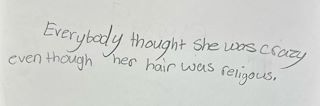 Everybody thought she was crazy
even though her hair was reiigous.